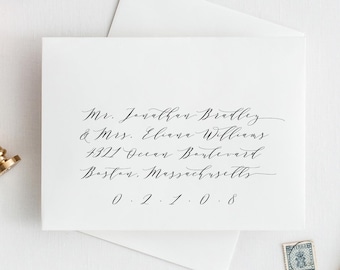 Mr. Jonathan Bradley
& Mrs. Eliana Williams
4321 Ocean Boulevard
Boston, Massachusetts
0 · 2 · 1 · 0 · 8